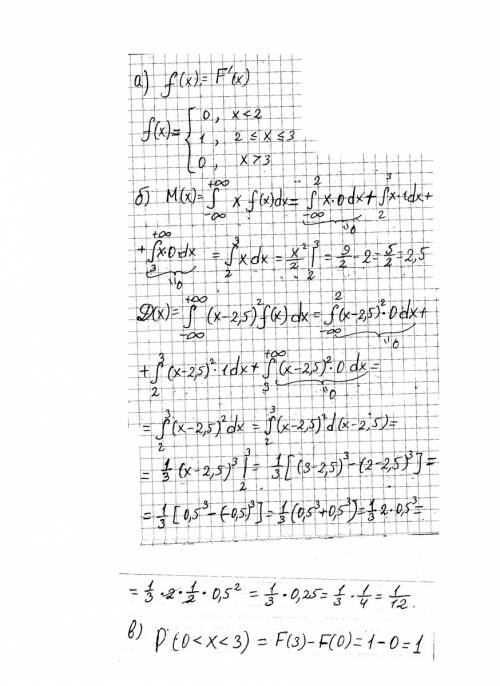 а) f(x) = F'(x)
f(x) = { 0, x < 2
1, 2 ≤ x ≤ 3
0, x > 3
б) M(x) = ∫_{-∞}^{+∞} x f(x)dx = ∫_{-∞}^{2} x·0 dx + ∫_{2}^{3} x·1dx +
"0
+ ∫_{3}^{+∞} x·0·dx = ∫_{2}^{3} x dx = x²/2 |_{2}^{3} = 9/2 - 2 = 5/2 = 2,5
"0
D(x) = ∫_{-∞}^{+∞} (x-2,5)² f(x) dx = ∫_{-∞}^{2} (x-2,5)²·0 dx +
"0
+ ∫_{2}^{3} (x-2,5)²·1dx + ∫_{3}^{+∞} (x-2,5)²·0 dx =
"0
= ∫_{2}^{3} (x-2,5)² dx = ∫_{2}^{3} (x-2,5)² d(x-2,5) =
= 1/3 (x-2,5)³ |_{2}^{3} = 1/3 [(3-2,5)³ - (2-2,5)³] =
= 1/3 [0,5³ - (-0,5)³] = 1/3 (0,5³ + 0,5³) = 1/3 2·0,5³ =
= 1/3 · 2 · 1/2 · 0,5² = 1/3 · 0,25 = 1/3 · 1/4 = 1/12.
в) P(0 < x < 3) = F(3) - F(0) = 1 - 0 = 1